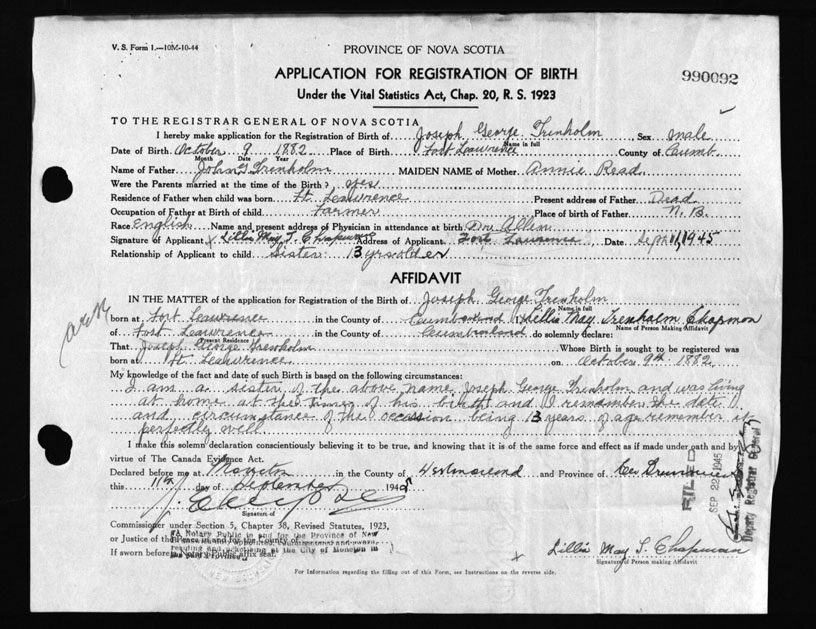 V. S. Form 1.—10M-10-44
PROVINCE OF NOVA SCOTIA
APPLICATION FOR REGISTRATION OF BIRTH
990092
Under the Vital Statistics Act, Chap. 20, R. S. 1923
TO THE REGISTRAR GENERAL OF NOVA SCOTIA
I hereby make application for the Registration of Birth of Joseph George Trenholm Sex male
Name in full
Date of Birth October 9 1882 Place of Birth Fort Lawrence County of Cumb.
Month Date Year
Name of Father John Trenholm MAIDEN NAME of Mother Annie Read
Were the Parents married at the time of the Birth? yes
Residence of Father when child was born Ft. Lawrence Present address of Father Dead
Occupation of Father at Birth of child Farmer Place of birth of Father N.B.
Race English Name and present address of Physician in attendance at birth Dr. Allen
Signature of Applicant x Lillis May T. Chapman Address of Applicant Fort Lawrence Date Sept 11, 1945
Relationship of Applicant to child Sister 13 yrs older
AFFIDAVIT
IN THE MATTER of the application for Registration of the Birth of Joseph George Trenholm
Name in full
born at Fort Lawrence in the County of Cumberland Lillis May Trenholm Chapman
Name of Person Making Affidavit
of Fort Lawrence in the County of Cumberland do solemnly declare:
Present Residence
That Joseph George Trenholm Whose Birth is sought to be registered was
born at Ft Lawrence on October 9th 1882
My knowledge of the fact and date of such Birth is based on the following circumstances:
I am a sister of the above name Joseph George Trenholm and was living
at home at the time of his birth and I remember the date
and circumstance of the occasion being 13 years of age remember it
perfectly well
I make this solemn declaration conscientiously believing it to be true, and knowing that it is of the same force and effect as if made under oath and by
virtue of The Canada Evidence Act.
Declared before me at Moncton in the County of Westmorland and Province of New Brunswick
this 11th day of September 1945
Signature of
Commissioner under Section 5, Chapter 38, Revised Statutes, 1923,
or Justice of the Peace in and for the County of
A Notary Public in and for the Province of New
residing and practising at the City of Moncton in
If sworn before a Notary Public affix seal.
x Lillis May T. Chapman
Signature of Person making Affidavit
For Information regarding the filling out of this Form, see Instructions on the reverse side.
FILED
SEP 22 1945
Deputy Registrar General